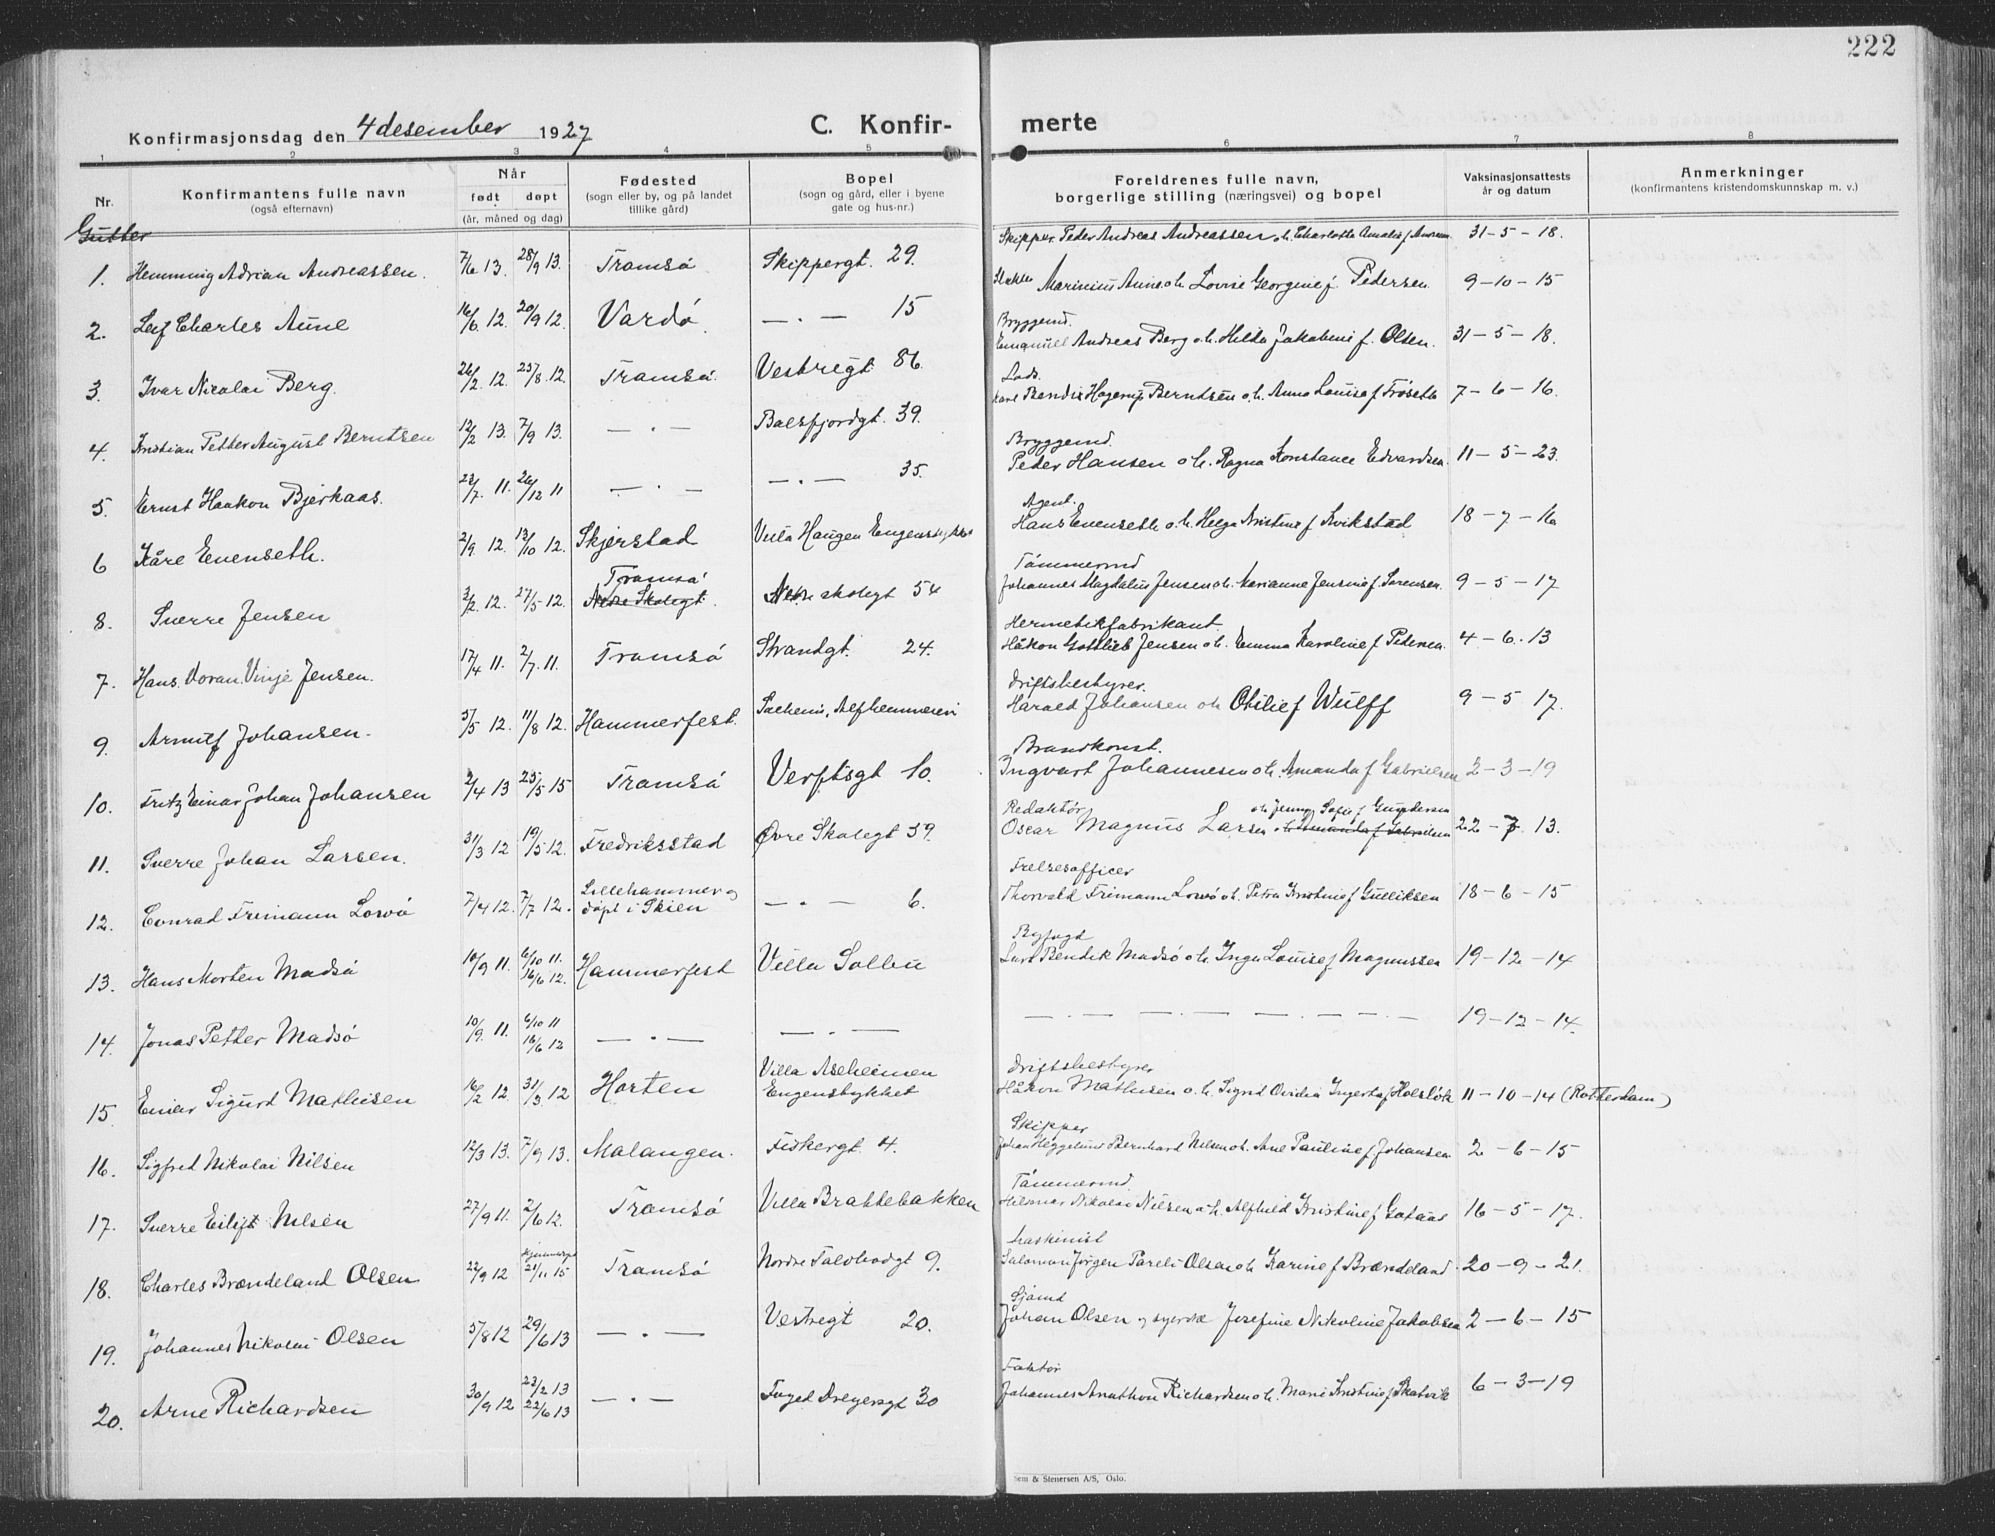 222
Konfirmasjonsdag den 4 desember 1927 C. Konfir- merte
1 2 3 4 5 6 7 8
Nr. Konfirmantens fulle navn (også efternavn) Når født døpt (år, måned og dag) Fødested (sogn eller by, og på landet tillike gård) Bopel (sogn og gård, eller i byene gate og hus-nr.) Foreldrenes fulle navn, borgerlige stilling (næringsvei) og bopel Vaksinasjonsattests år og datum Anmerkninger (konfirmantens kristendomskunnskap m. v.)
Gutter
1. Hemming Adrian Andreassen. 7/6 13. 28/9 13. Tromsø Skippergt. 29. Skipper Peder Andreas Andreassen o.h. Charlotte Amalie f. 31-5-18.
2. Leif Charles Aune 16/6 12. 20/9 12. Vardø. — . — 15 Marinius Aune o.h. Lovise Georgine f. Pedersen 9-10-15
3. Ivar Nicolai Berg. 26/2 12. 25/8 12. Tromsø. Vestregt 86. Bryggemd. Emanuell Andreas Berg o.h. Hilda Jakobine f. Olsen. 31-5-18.
4. Kristian Petter August Berntsen 12/2 13. 7/9 13. — . — Balsfjordgt. 39. Lods. Karl Bendix Hagerup Berntsen o.h. Anna Louise f. Frøseth 7-6-16.
5. Ernst Haakon Bjerkaas. 23/7 11. 26/12 11 — . — — . — 35. Bryggemd. Peder Hansen o h. Ragna Konstance Edvardsen. 11-5-23.
6 Kåre Evenseth. 2/9 12. 13/10 12. Skjerstad Villa Haugen Agent. Hans Evenseth o.h. Helga Kristine f. Kvikstad 18-7-16
8. Sverre Jensen 3/2 12. 27/5 12. Tromsø Nedre Skolegt. Nedre skolegt 54 Tømmermd Johannes Magdalus Jensen o.h. Marianne Jensine f. Sørensen. 9-5-17
7. Hans. Voran. Vinje Jensen. 17/4 11. 2/7 11. Tromsø Strandgt. 24. Hermetikfabrikant Håkon Gottlieb Jensen o.h. Emma Karoline f. Pedersen. 4-6-13
9. Arnulf Johansen. 5/5 12. 11/8 12. Hammerfest. Driftsbestyrer. Harald Johansen o h Otilie f Wulff 9-5-17.
10. Fritz Einar Johan Johansen 2/4 13 25/5 15 Tromsø Verftsgt 10. Brandkonst. Ingvart Johannesen o.h. Amanda f Gabrielsen 2-3-19
11. Sverre Johan Larsen. 31/3 12 19/5 12. Fredriksstad Øvre Skolegt 39. Redaktør Oscar Magnus Larsen o.h. Jenny Sofie f. Gundersen o.h. Amanda f Gabrielsen 22-7-13.
12. Conrad Freimann Lorvø 7/4 12. 7/7 12. Lillehammer og døpt i Skien — . — 6. Frelsesofficer Thorvald Frimann Lorvø o.h. Petra Kristine f Gulliksen 18-6-15
13. Hans Morten Madsø 10/9 11. 6/10 11. 16/6 12. Hammerfest Villa Solbu Byfogd Bendik Madsø o h. Inga Louise f Magnussen 19-12-14
14. Jonas Petter Madsø 10/9 11. 6/10 11 16/6 12 — . — — . — — . — . — . — 19-12-14.
15. Einar Sigurd Mathisen 16/2 12. 31/3 12 Horten Villa Aseheimen Engensbykket Driftsbestyrer Håkon Mathisen o.h. Sigrid Ovidia Ingerta f Holsløk 11-10-14 (Rotterdam)
16. Sigfred Nikolai Nilsen 12/3 13. 7/9 13. Malangen. Fiskergt 4. Skipper Johan Heggelund Bernhard Nilsen o h. Ane Pauline f Johansen 2-6-15
17. Sverre Eilift Nilsen 27/9 11. 2/6 12. Tromsø Villa Brattebakken Tømmermd Hilmar Nikolai Nilsen o.h. Alfhild Kristine f Gotaas 16-5-17.
18. Charles Brændeland Olsen 22/9 12 hjemmedøpt 21/11 15 Tromsø Nordre Tolbodgt 9. Maskinist Salomon Jørgen Pareli Olsen o h Karine f Brændeland 20-9-21.
19. Johannes Nikolai Olsen 5/8 12 29/6 13 — . — Vestregt 20. Sjømd Johan Olsen og Josefine Nikoline Jakobsen 2-6-15
20. Arne Richardsen 30/9 12 23/2 13 22/6 13 — . — Foged Dreyersgt 30 Faktor Johannes Anathon Richardsen o.h. Marie Kristine f Skatvik 6-3-19
Sem & Stenersen A/S, Oslo.